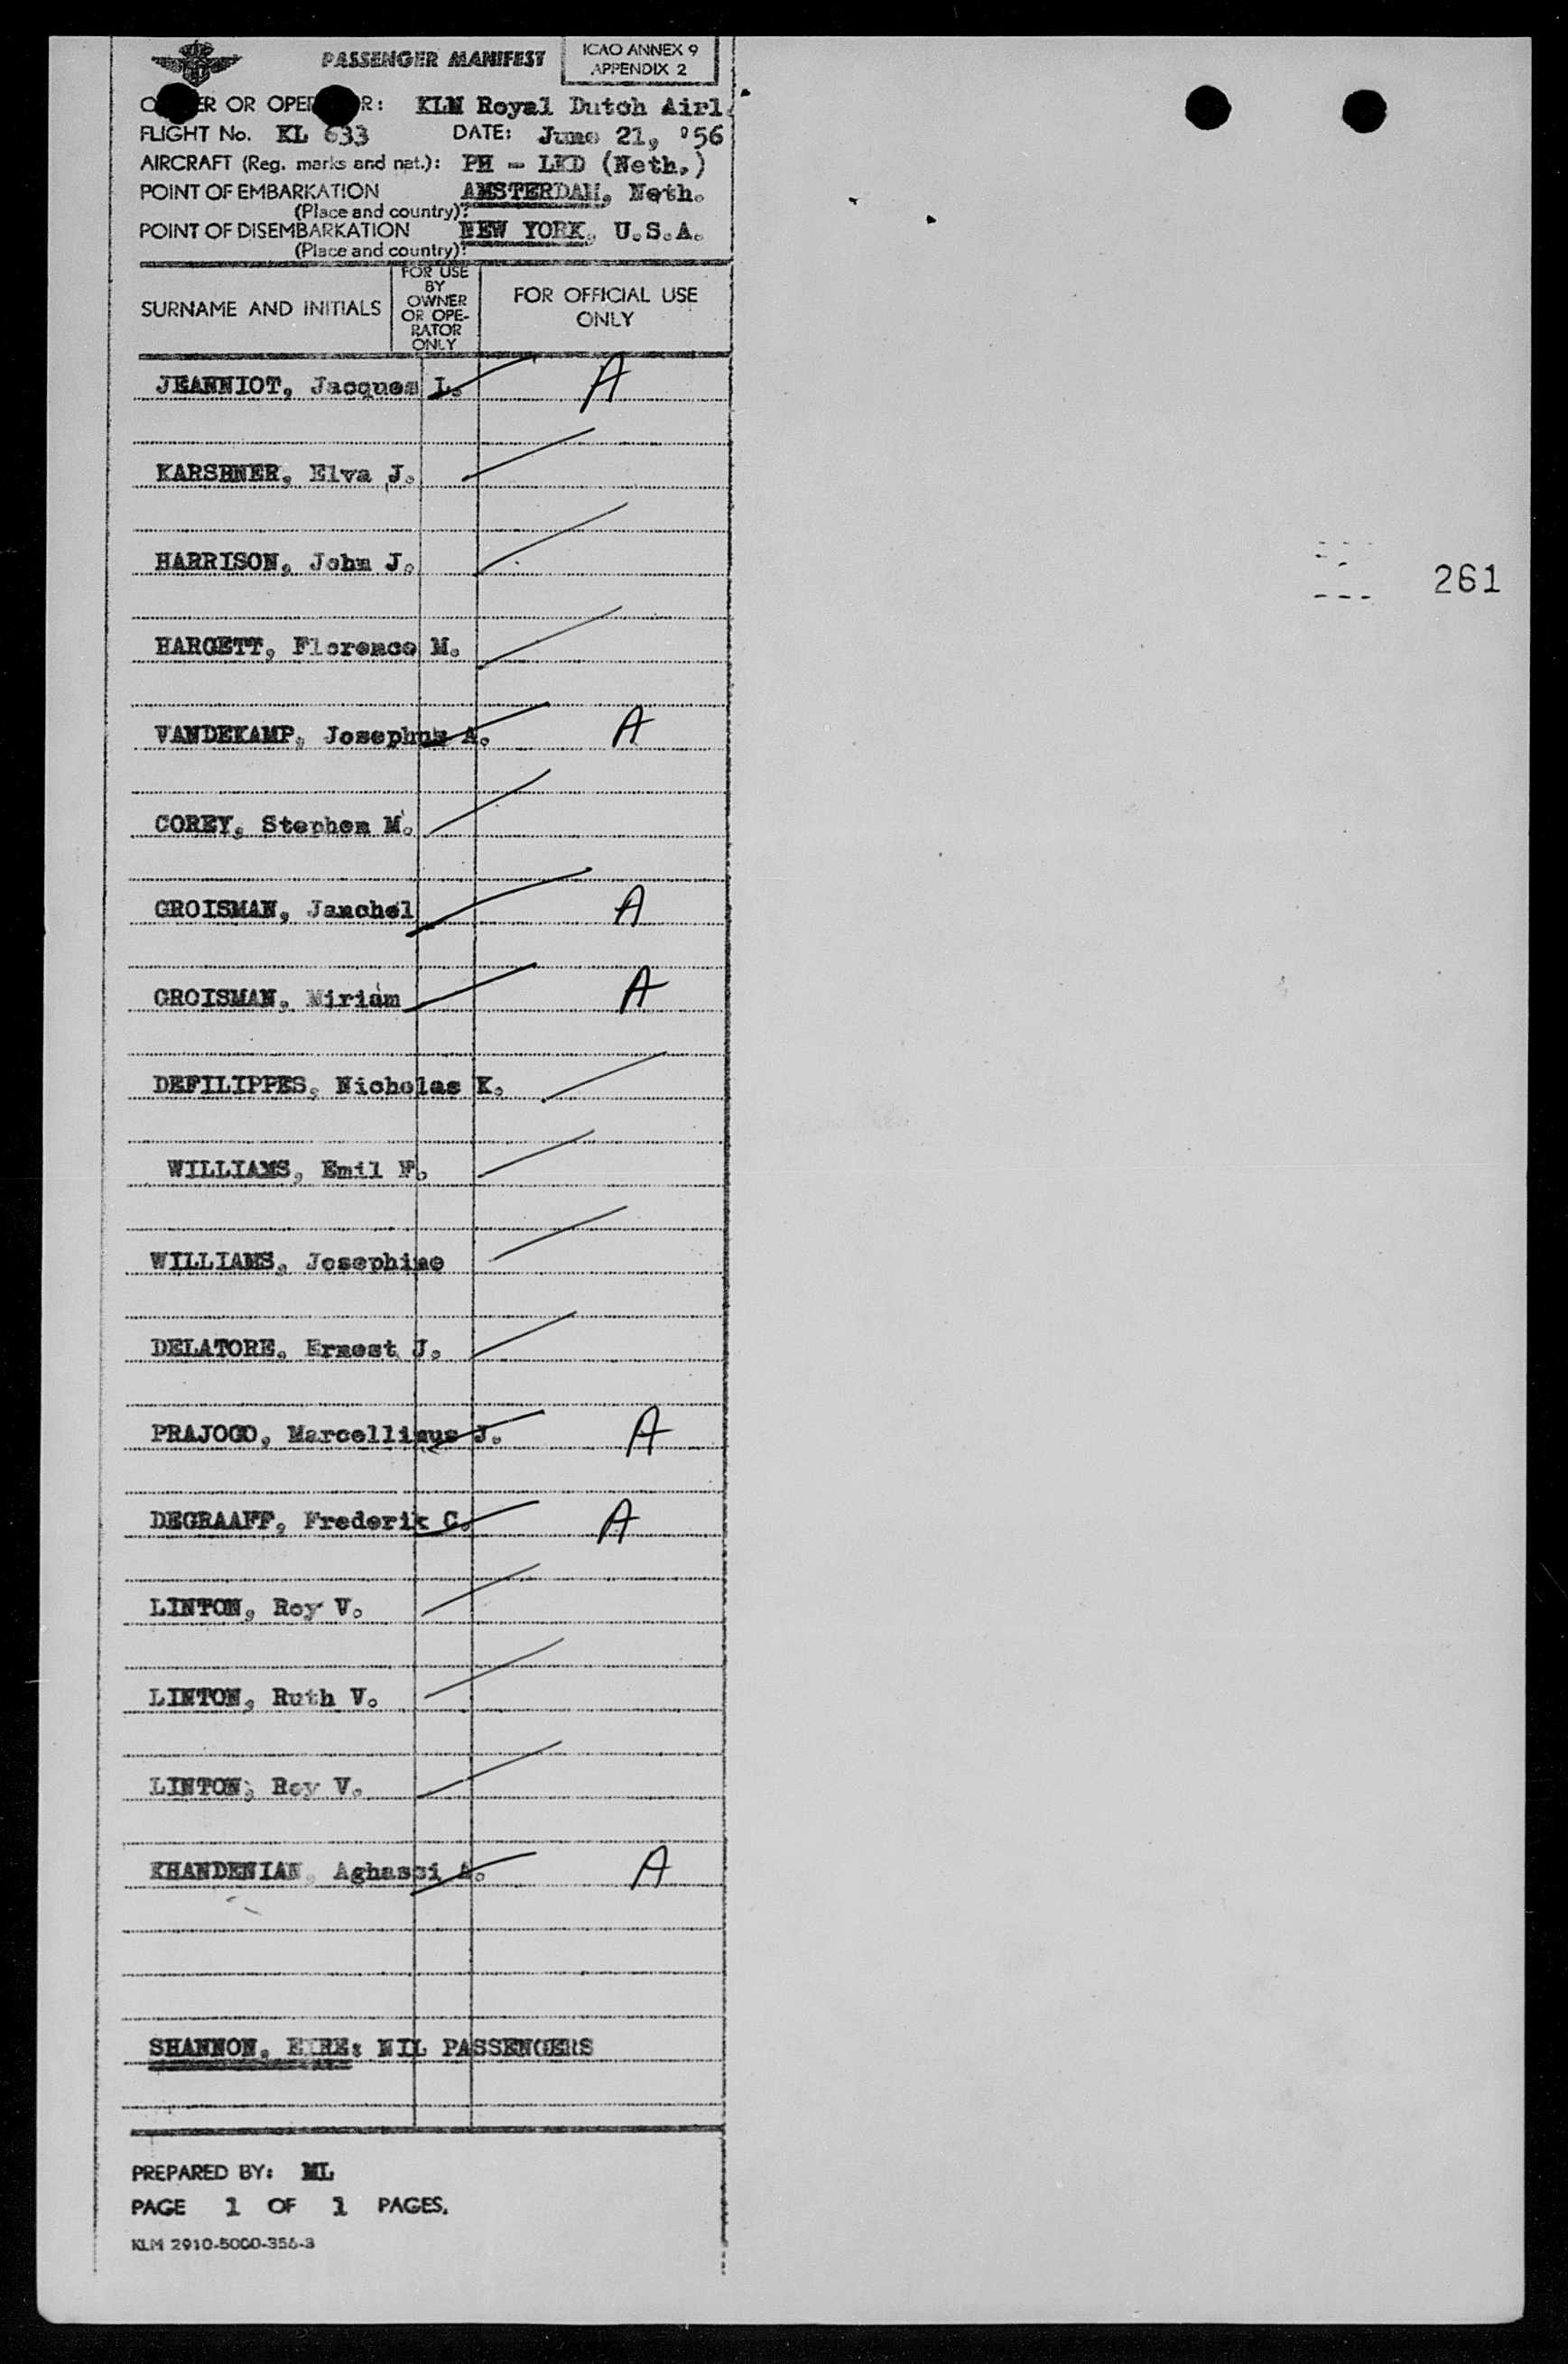 PASSENGER MANIFEST
ICAO ANNEX 9
APPENDIX 2
R OR OPE R: KLM Royal Dutch Airl.
FLIGHT No. KL 633 DATE: June 21, '56
AIRCRAFT (Reg. marks and nat.): PH - LKD (Neth.)
POINT OF EMBARKATION AMSTERDAM, Neth.
(Place and country):
POINT OF DISEMBARKATION NEW YORK, U.S.A.
(Place and country):
SURNAME AND INITIALS
FOR USE
BY
OWNER
OR OPE-
RATOR
ONLY
FOR OFFICIAL USE
ONLY
JEANNIOT, Jacques L. A
KARSBNER, Elva J.
HARRISON, John J.
261
HARGETT, Florence M.
VANDEKAMP, Josephus A. A
COREY, Stephen M.
GROISMAN, Janchel A
GROISMAN, Miriam A
DEFILIPPES, Nicholas K.
WILLIAMS, Emil F.
WILLIAMS, Josephine
DELATORE, Ernest J.
PRAJOGO, Marcellinus J. A
DEGRAAFF, Frederik C. A
LINTON, Roy V.
LINTON, Ruth V.
LINTON, Roy V.
KHANDENIAN, Aghassi A. A
SHANNON, EIRE: NIL PASSENGERS
PREPARED BY: ML
PAGE 1 OF 1 PAGES.
KLM 2910-5000-356-3